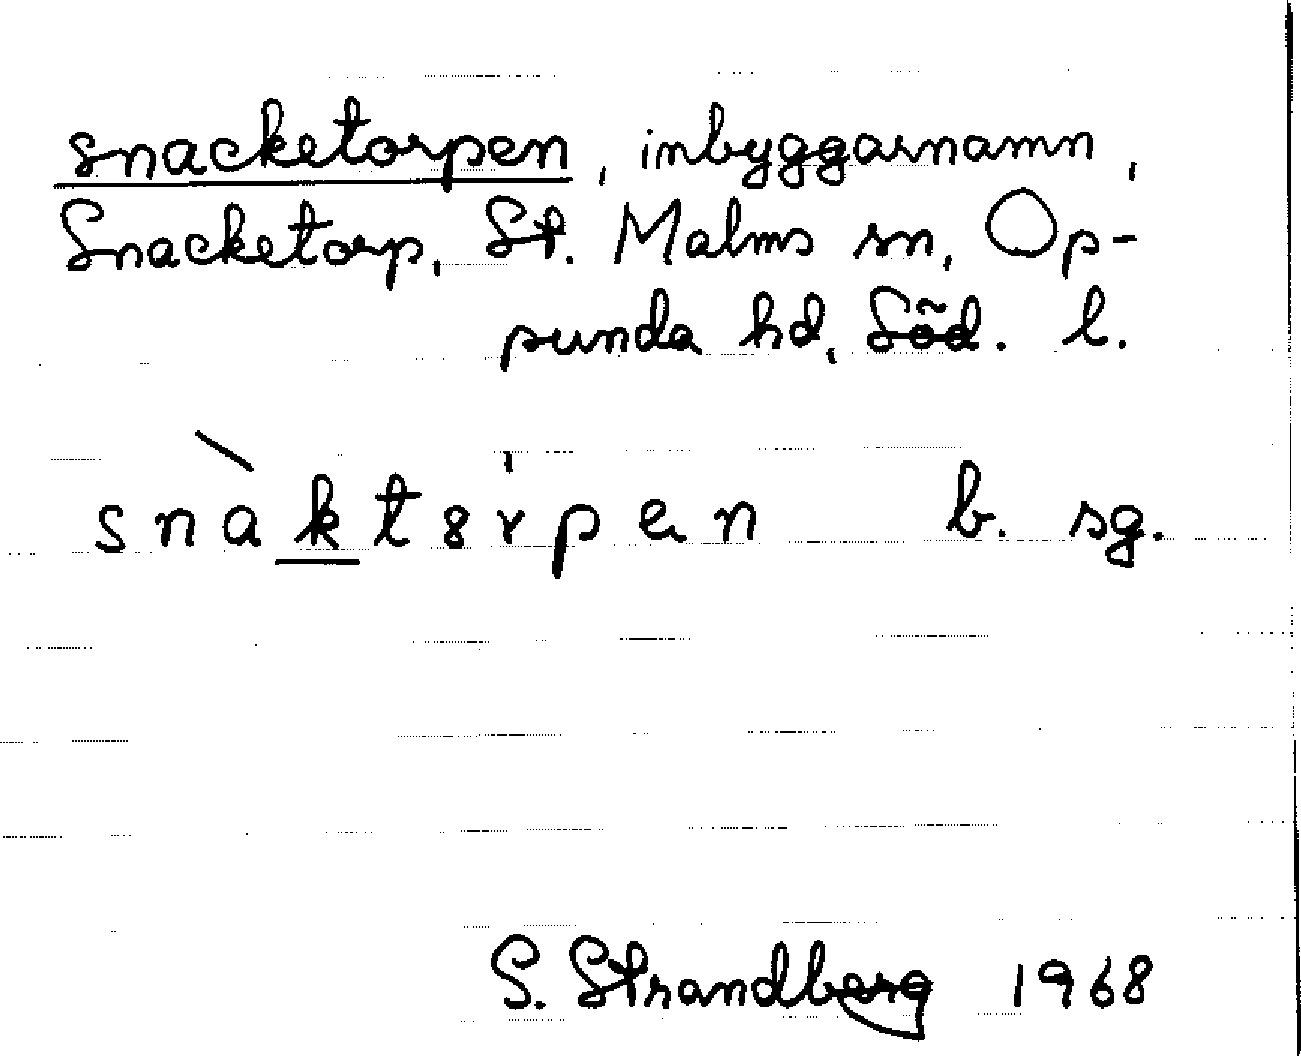 snacketorpen, inbyggarnamn,
Snacketorp, St. Malms sn, Op-
punda hd, Söd. l.
snàkt8rpen b. sg.
S. Strandberg 1968